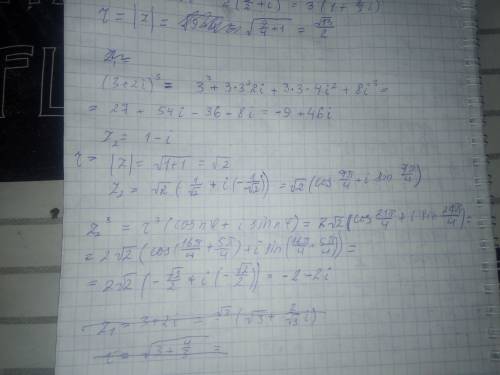 r = |z| = = √(9/4+1) = √13/2
z₁
(3+2i)³ = 3³ + 3·3²2i + 3·3·4i² + 8i³ =
= 27 + 54i - 36 - 8i = -9 + 46i
z₂ = 1-i
r = |z| = √(1+1) = √2
z₂ = √2 (1/√2 + i(-1/√2)) = √2 (cos 7π/4 + i sin 7π/4)
z₂³ = r³ (cos nφ + i sin nφ) = 2√2 (cos 21π/4 + i sin 21π/4) =
= 2√2 (cos(16π/4 + 5π/4) + i sin(16π/4 + 5π/4)) =
= 2√2 (-√2/2 + i(-√2/2)) = -2-2i
z₁ = 3+2i = √3 (√3 + 2/√3 i)
r = √(3 + 4/3) =